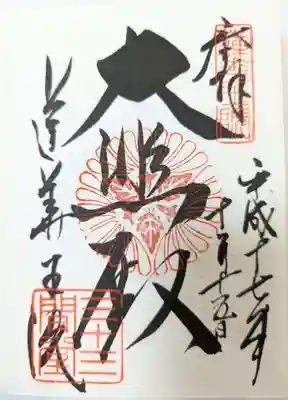 奉拝
平成十七年
十五日
大悲殿
蓮華王院
三十三
間堂